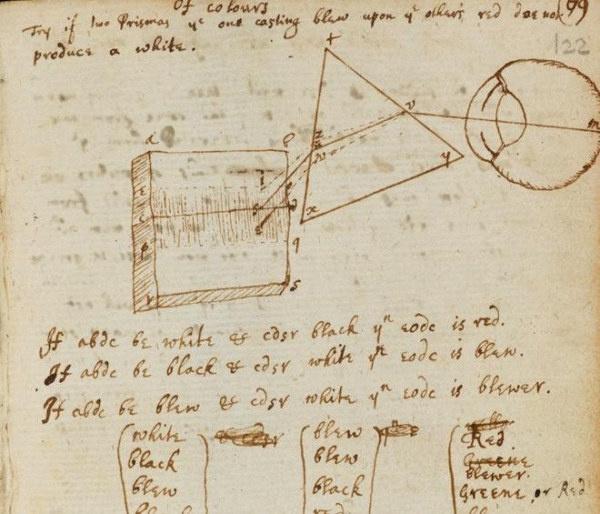 Of colours 99
Try if two Prismas yͤ one casting blew upon yͤ other's red doe not
produce a white.
122
If abdc be white & cdsr black yⁿ eodc is red.
If abdc be black & cdsr white yⁿ eodc is blew.
If abdc be blew & cdsr white yⁿ eodc is blewer.
white blew Red
black blew Greene blewer.
blew black Greene, or Red